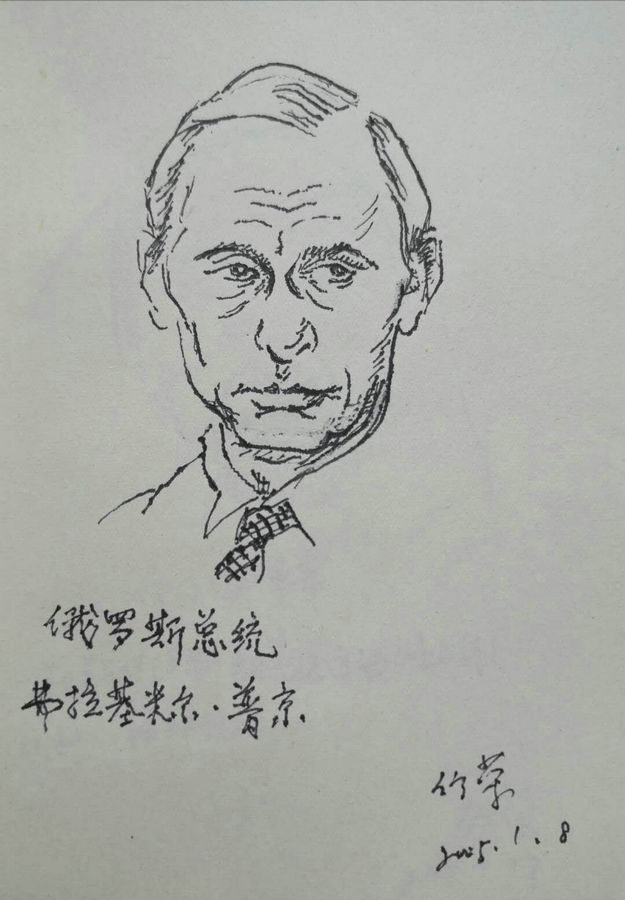 俄罗斯总统
弗拉基米尔·普京
竹荣
2025.1.8